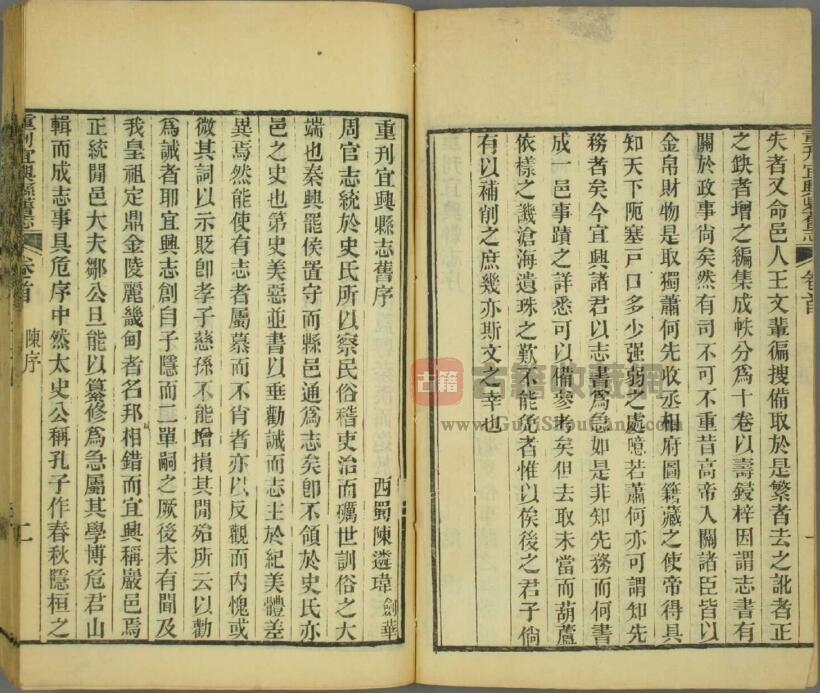 失者又命邑人王文軰徧搜備取於是繁者去之訛者正
之鈌者增之編集成帙分為十卷以壽鋟梓因謂志書有
關於政事尚矣然有司不可不重昔高帝入關諸臣皆以
金帛財物是取獨蕭何先收丞相府圖籍藏之使帝得具
知天下阨塞戸口多少强弱之處噫若蕭何亦可謂知先
務者矣今宜興諸君以志書為急如是非知先務而何書
成一邑事蹟之詳悉可以備參考矣但去取未當而葫蘆
依樣之譏滄海遺珠之歎不能免者惟以俟後之君子倘
有以補削之庶幾亦斯文之幸也
重刊宜興縣舊志
卷首
一
重刊宜興縣志舊序
西蜀陳遴瑋 劍華
周官志統於史氏所以察民俗稽吏治而礪世訓俗之大
端也秦興罷侯置守而縣邑通為志矣卽不領於史氏亦
邑之史也第史美惡並書以垂勸誡而志主於紀美體差
異焉然能使有志者屬慕而不肖者亦以反觀而内愧或
微其詞以示貶卽孝子慈孫不能增損其閒殆所云以勸
爲誡者耶宜興志創自子隱而二單嗣之厥後未有聞及
我皇祖定鼎金陵麗畿甸者名邦相錯而宜興稱巖邑焉
正統閒邑大夫鄒公旦能以纂修爲急屬其學博危君山
輯而成志事具危序中然太史公稱孔子作春秋隱桓之
重刊宜興縣舊志
卷首
陳序
二
古籍
古籍收藏網
www.GuJiShouCang.com